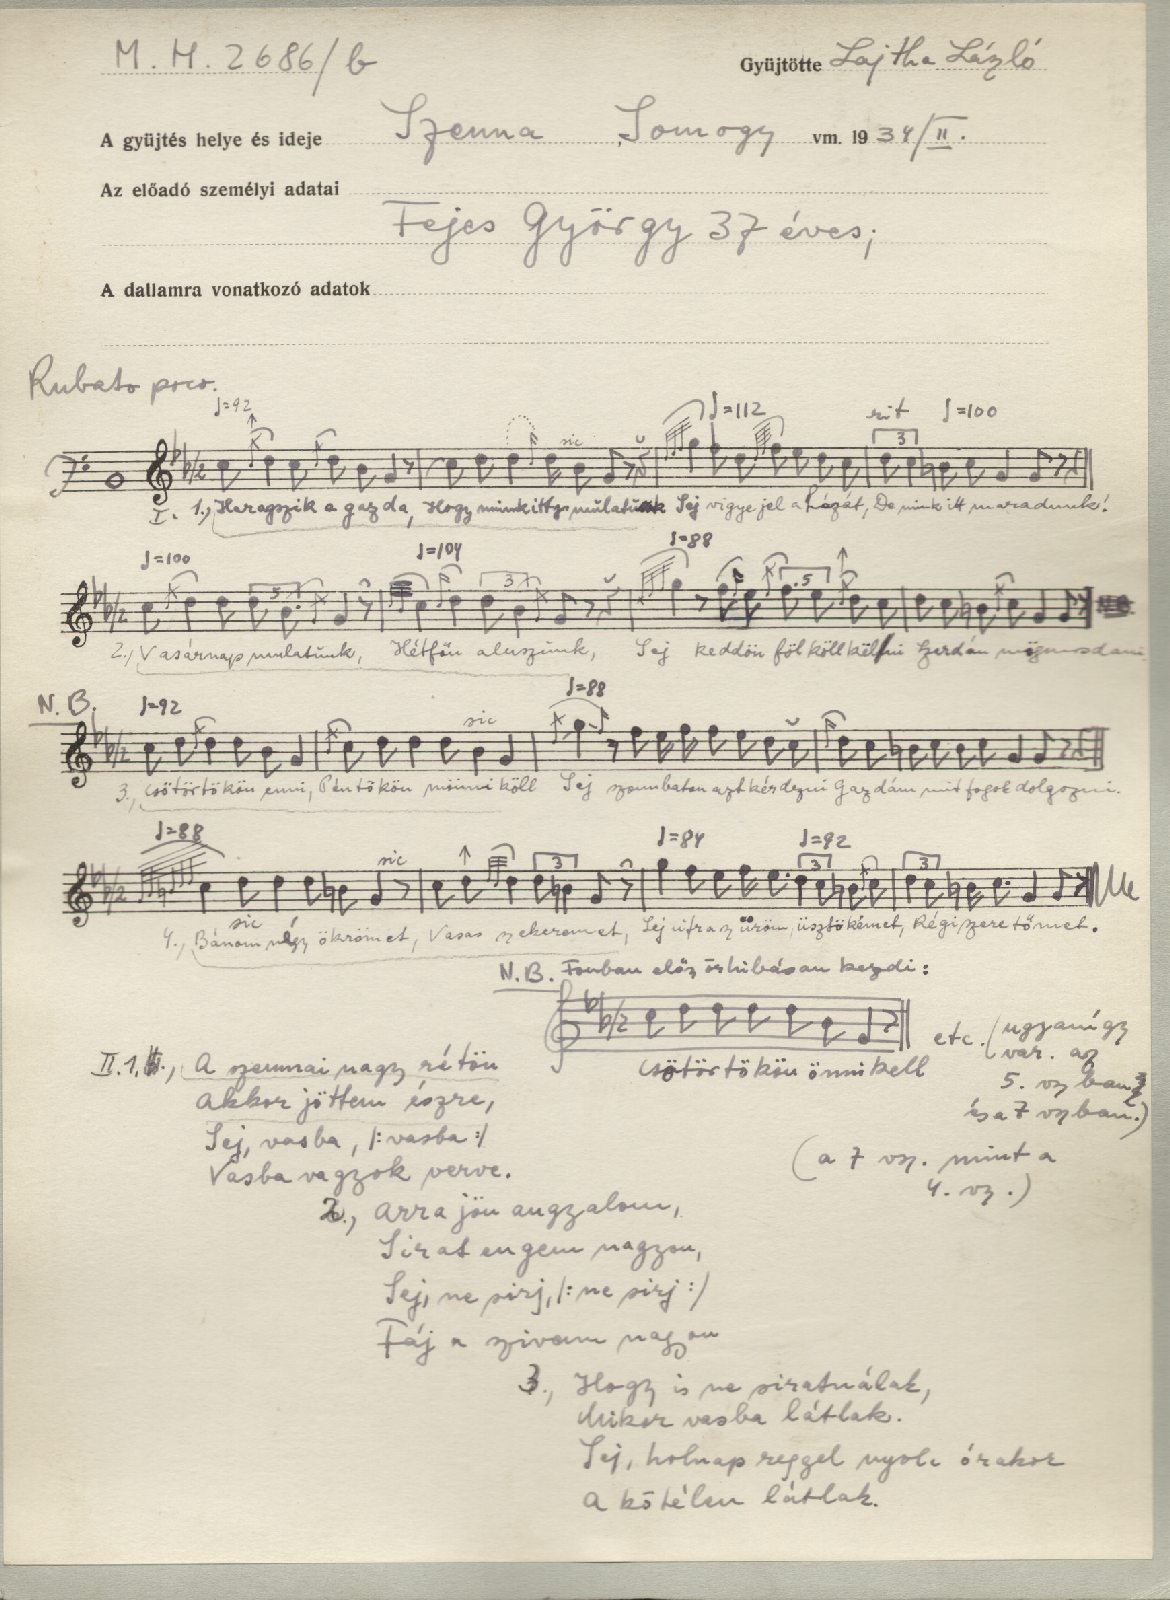 M. H. 2686/b
Gyüjtötte Lajtha László
A gyüjtés helye és ideje Szenna, Somogy vm. 1934/II.
Az előadó személyi adatai
Fejes György 37 éves;
A dallamra vonatkozó adatok
Rubato poco.
♩=92 sic ♩=112 rit ♩=100
3
I. 1., Haragszik a gazda, Hogy mink itt mulatunk Sej vigye jel a házát, De mink itt maradunk!
♩=100 ♩=104 ♩=88
5 3 5
2., Vasárnap mulatunk, Hétfőn aluszunk, Sej keddön föl köll kelni Szerdán mögmosdani
N.B. ♩=92 sic ♩=88
3., csötörtökön enni, Péntökön mönni köll Sej szombaton azt kérdezni Gazdám mit fogok dolgozni.
♩=88 sic ♩=84 ♩=92
3 3 3
sic
4., Bánom négy ökrömet, Vasas szekeremet, Sej cifra szűröm, üsztökémet, Régi szeretőmet.
N.B. Fonban először hibásan kezdi:
csötörtökön önni kell
etc. (ugyanígy
var. az
5. vszban
és a 7 vszban.)
(a 7 vsz. mint a
4. vsz.)
II. 1., A szennai nagy rétön
Akkor jöttem észre,
Sej, vasba, /: vasba :/
Vasba vagyok verve.
2., Arra jön angyalom,
Sirat engem nagyon,
Sej, ne sirj, /: ne sirj :/
Fáj a szivem nagyon
3., Hogy is ne siratnálak,
Mikor vasba látlak.
Sej, holnap reggel nyolc órakor
A kötélen látlak.